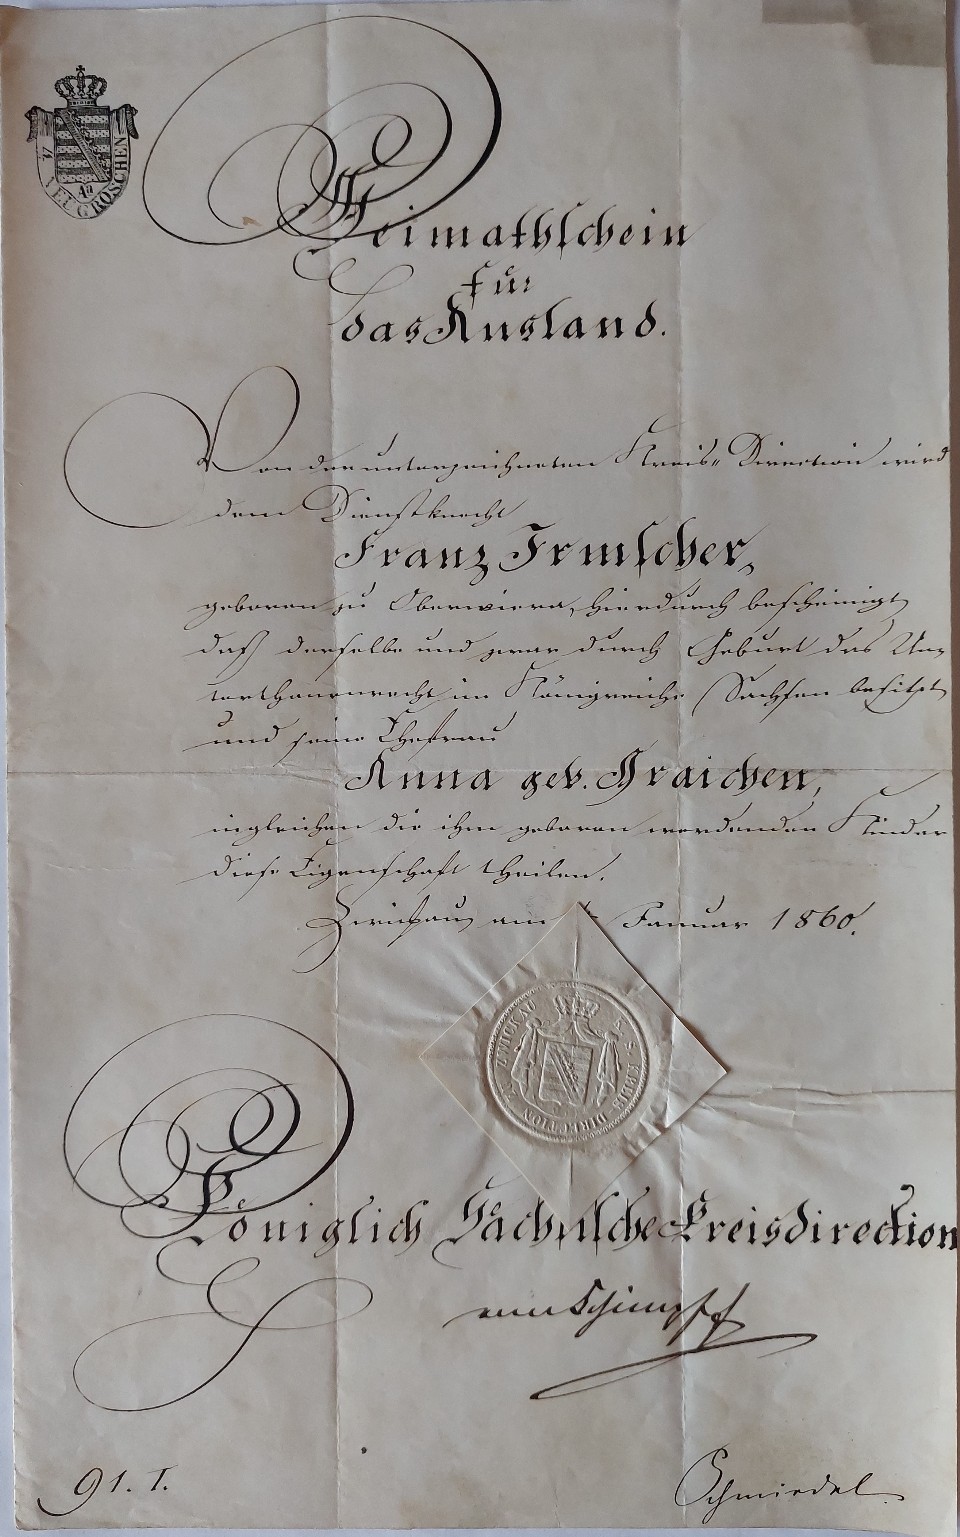 NEUGROSCHEN
Heimathschein
für
das Ausland.
Von der unterzeichneten Kreis-Direction wird
dem Dienstknecht
Franz Irmscher,
geboren zu Oberwiera, hierdurch bescheinigt,
daß derselbe und zwar durch Geburt das Un-
terthanenrecht im Königreiche Sachsen besitzt,
und seine Ehefrau
Anna geb. Graichen,
ingleichen die ihm geboren werdenden Kinder
diese Eigenschaft theilen.
Zwickau, am Januar 1860.
K. S. KREIS DIRECTION ZU ZWICKAU
Königlich Sächsische Kreisdirection
von Schimpff
91. I.
Schmiedel.